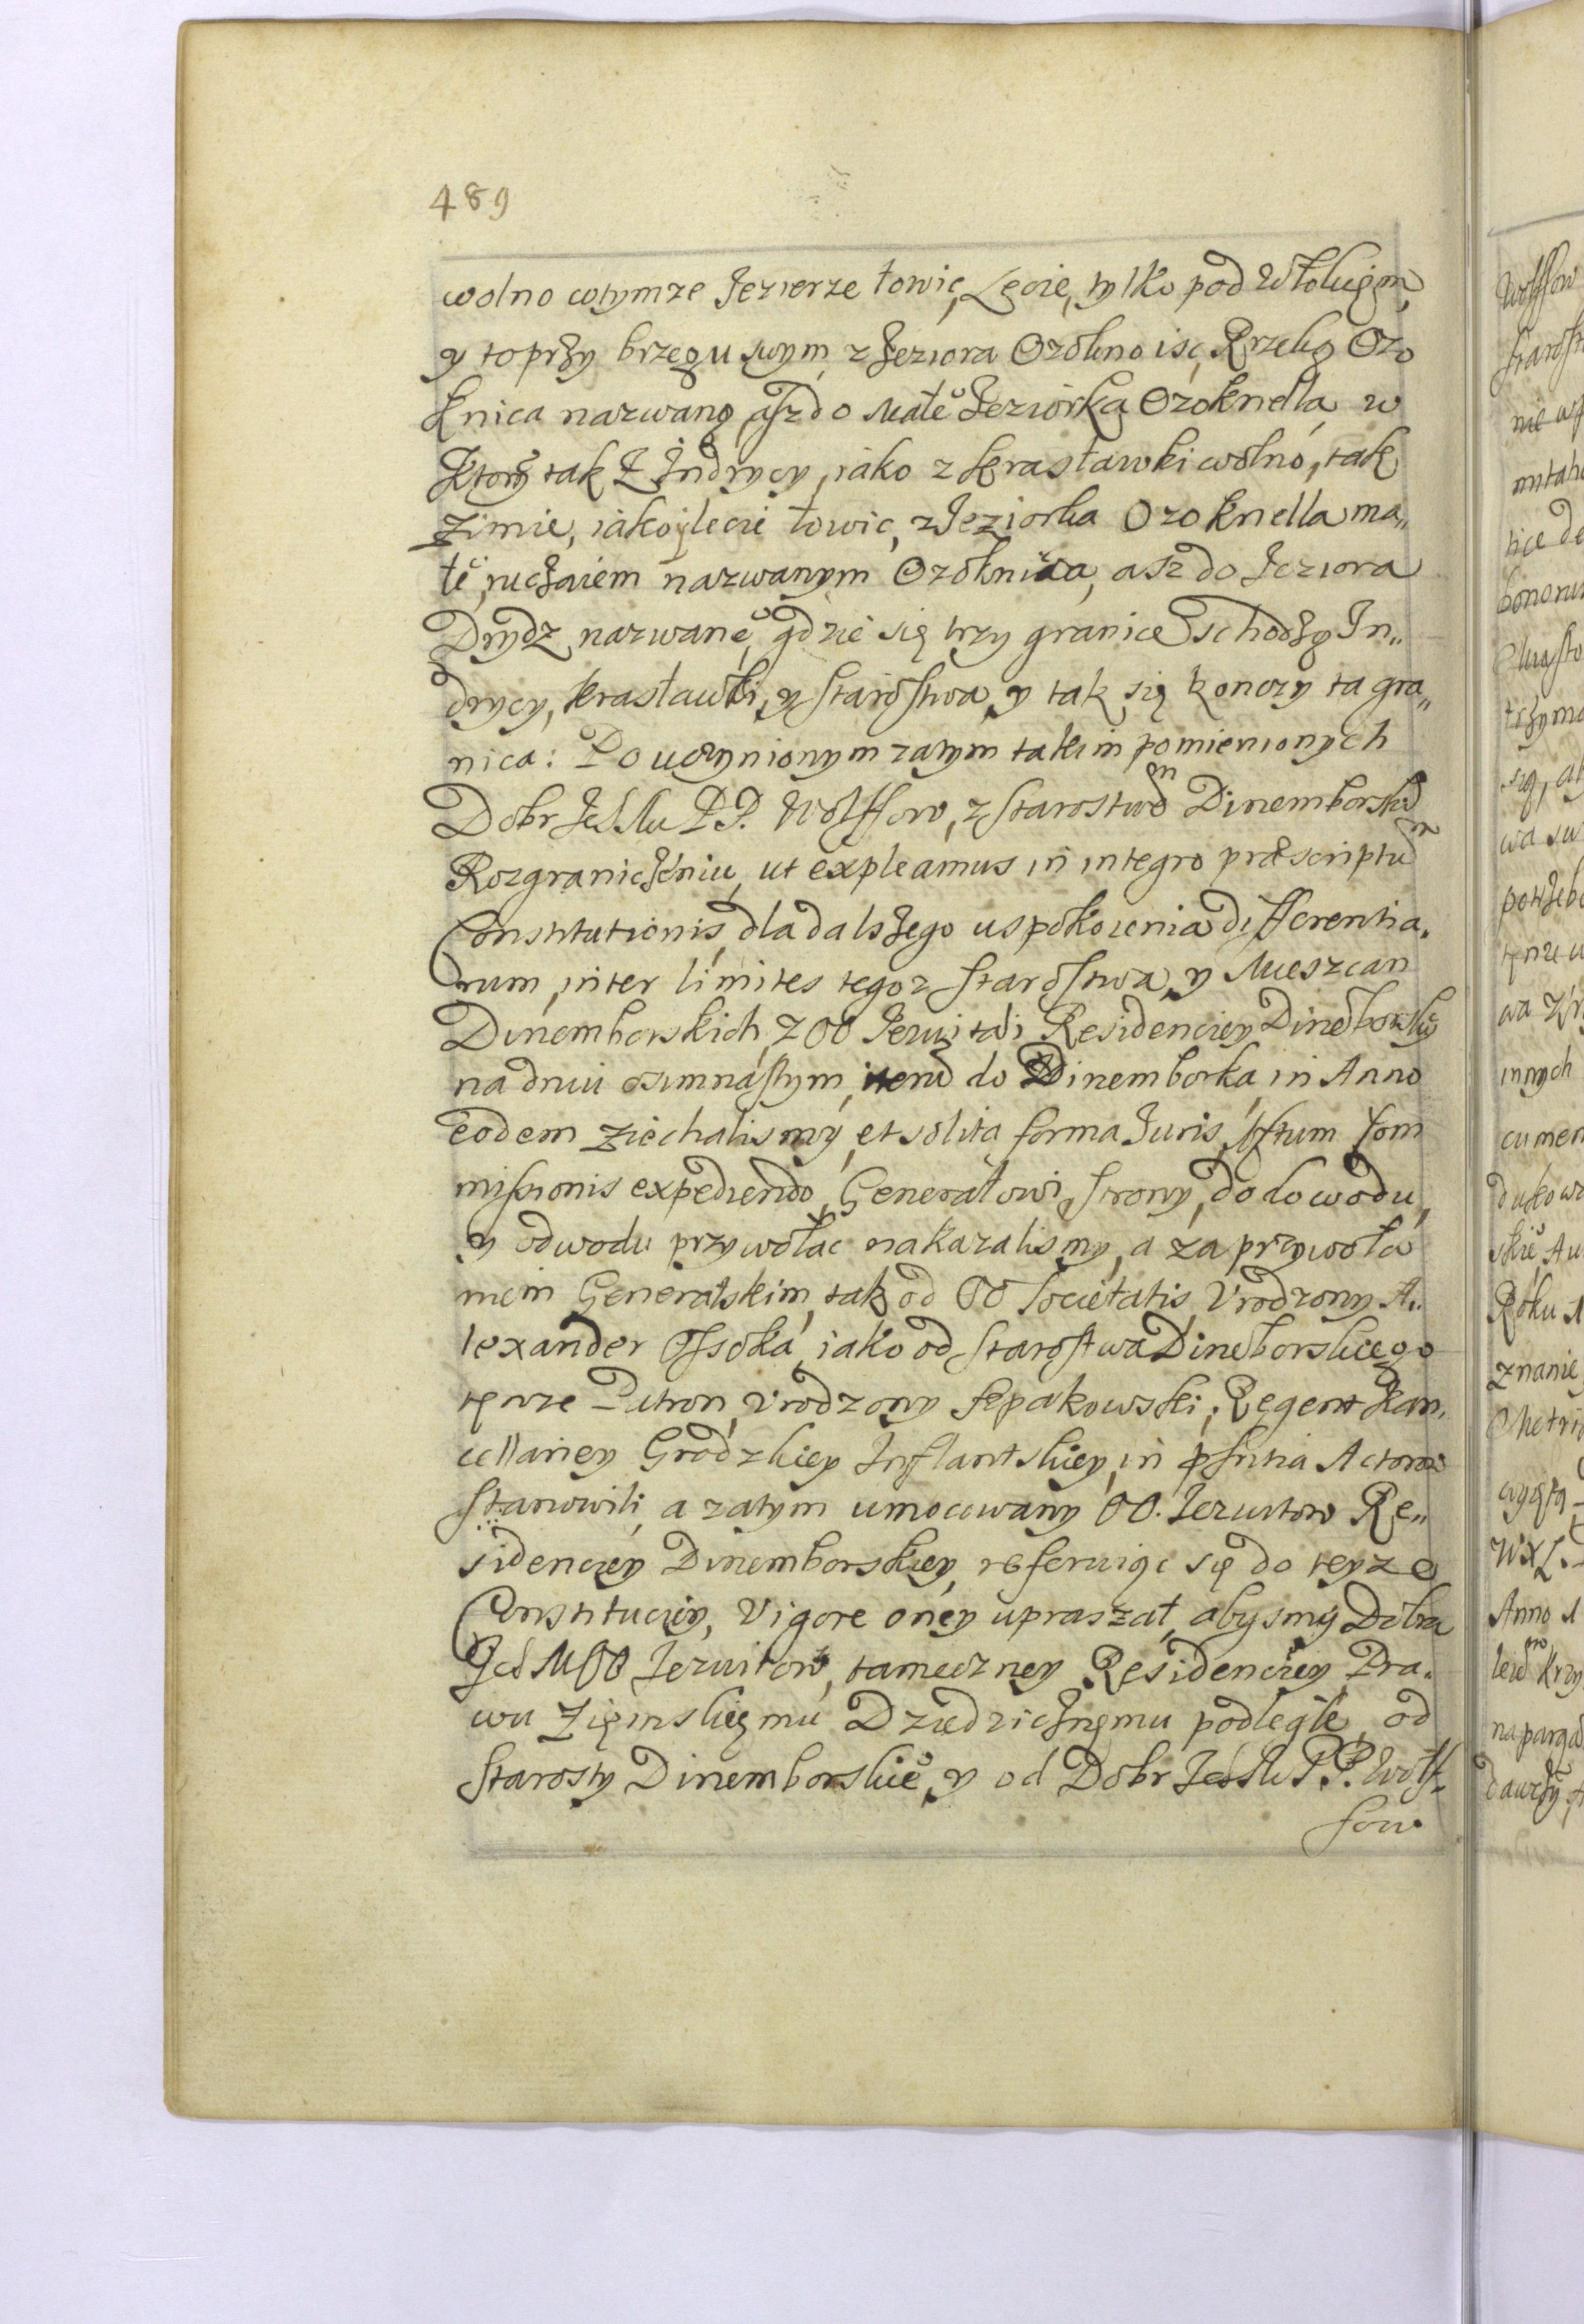 489
wolno wtymze Jezierze łowic, Lecie, tylko pod Włokiem,
y to przy brzegu swym, z Jeziora Ozokno isc, Rzeką Ozo
knica nazwaną, asz do Małe° Jeziorka Ozoknella, w
Ktory tak Z Indrycy, iako z Krasławki wolno, tak
Zimie, iako y lecie łowic, z Jeziorka Ozoknella ma„
łe°, ruczaiem nazwanym Ozoknica, asz do Jeziora
Drydz nazwane°, gdzie się trzy granice schodzą In„
drycy, Krasławki, y Starostwa, y tak się konczy ta gra„
nica: Po uczynionym zatym takim pomienionych
Dobr JchMu P.P. Wolffow, z Starostwem Dinemborskim
Rozgraniczeniu, ut expleamus in integro præscriptum
Constitutionis, dla dalszego uspokoienia differentia„
rum, inter limites tegoz Starostwa, y Mieszczan
Dinemborskich, z OO Jezuitami Residenciey Dineborskiey
na dniu osmnastym, item do Dinemborka, in Anno
eodem ziechalismy, et solita forma Juris, Actum Com
missionis expediendo, Generałowi, strony, do dowodu,
y odwodu przywołac nakazalismy, a za przywoła
niem Generalskim, tak od OO Societatis, Vrodzony A„
lexander Ossoka, iako od Starostwa Dineborskiego
tenze Patron, Vrodzony Sepakowski, Regent Kan„
cellariey Grodzkiey Inflantskiey, in pñtia Actorow
stanowili, a zatym umocowany OO. Jezuitow Re„
sidenciey Dinemborskiey, referuiąc się do teyze
Constituciey, Vigore oney upraszał, abysmy Dobra
Jch MOO Jezuitow, tameczney Residenciey, Pra„
wu Zięmskięmu Dziedzicznęmu podległe, od
Starosty Dinemborskie°, y od Dobr JchMP.P. Wolf„
fow